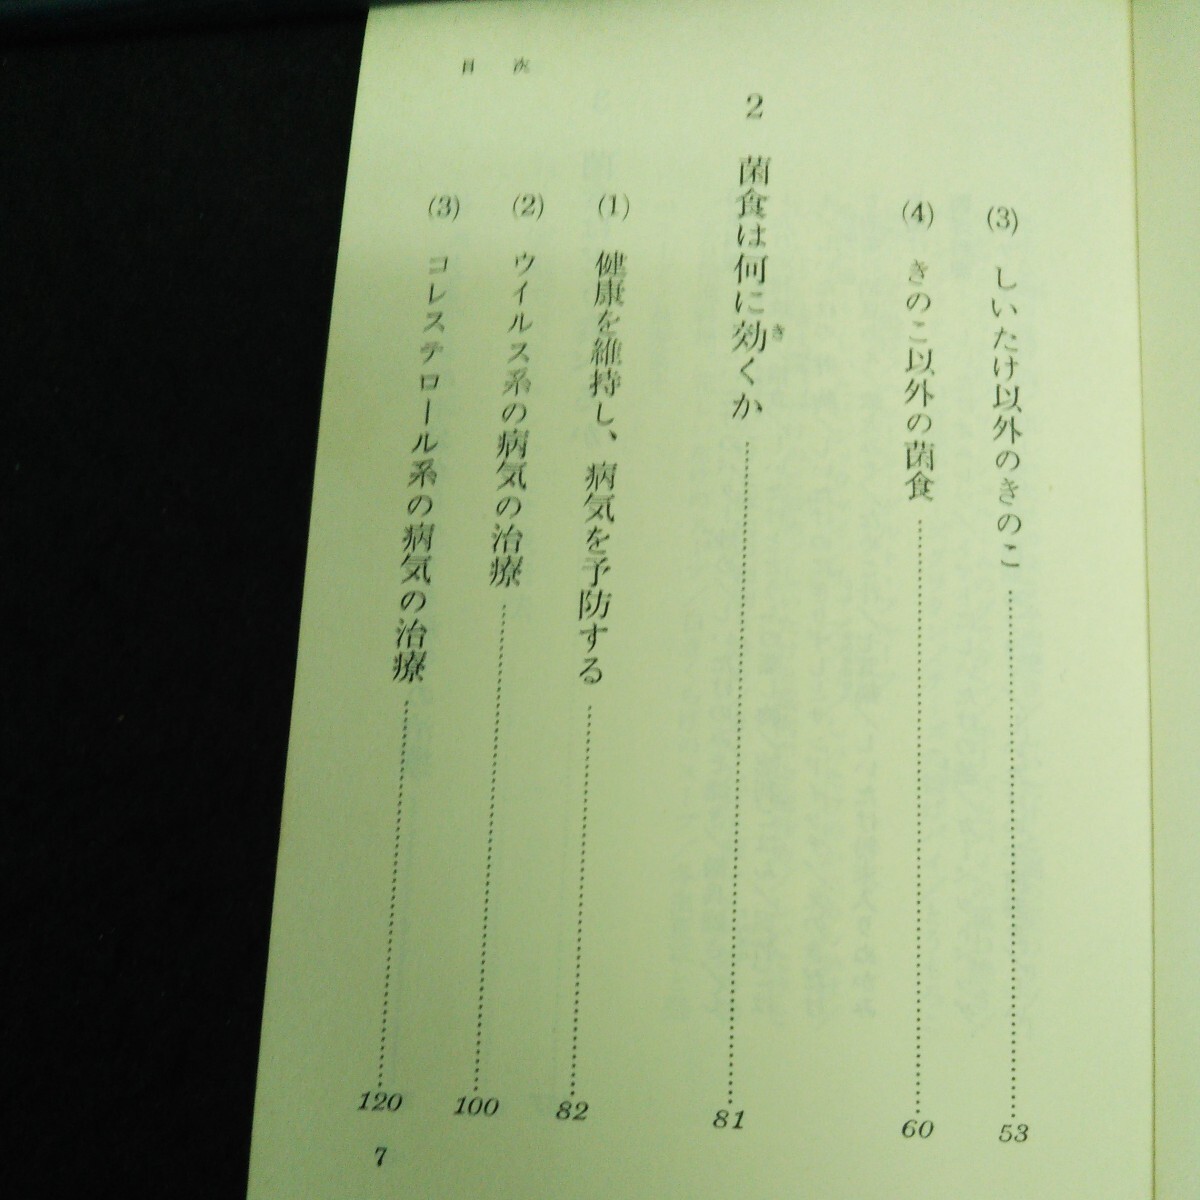 (3) しいたけ以外のきのこ……53
(4) きのこ以外の菌食……60
2 菌食は何に効くか……81
き
(1) 健康を維持し、病気を予防する……82
(2) ウイルス系の病気の治療……100
(3) コレステロール系の病気の治療……120
目次
7